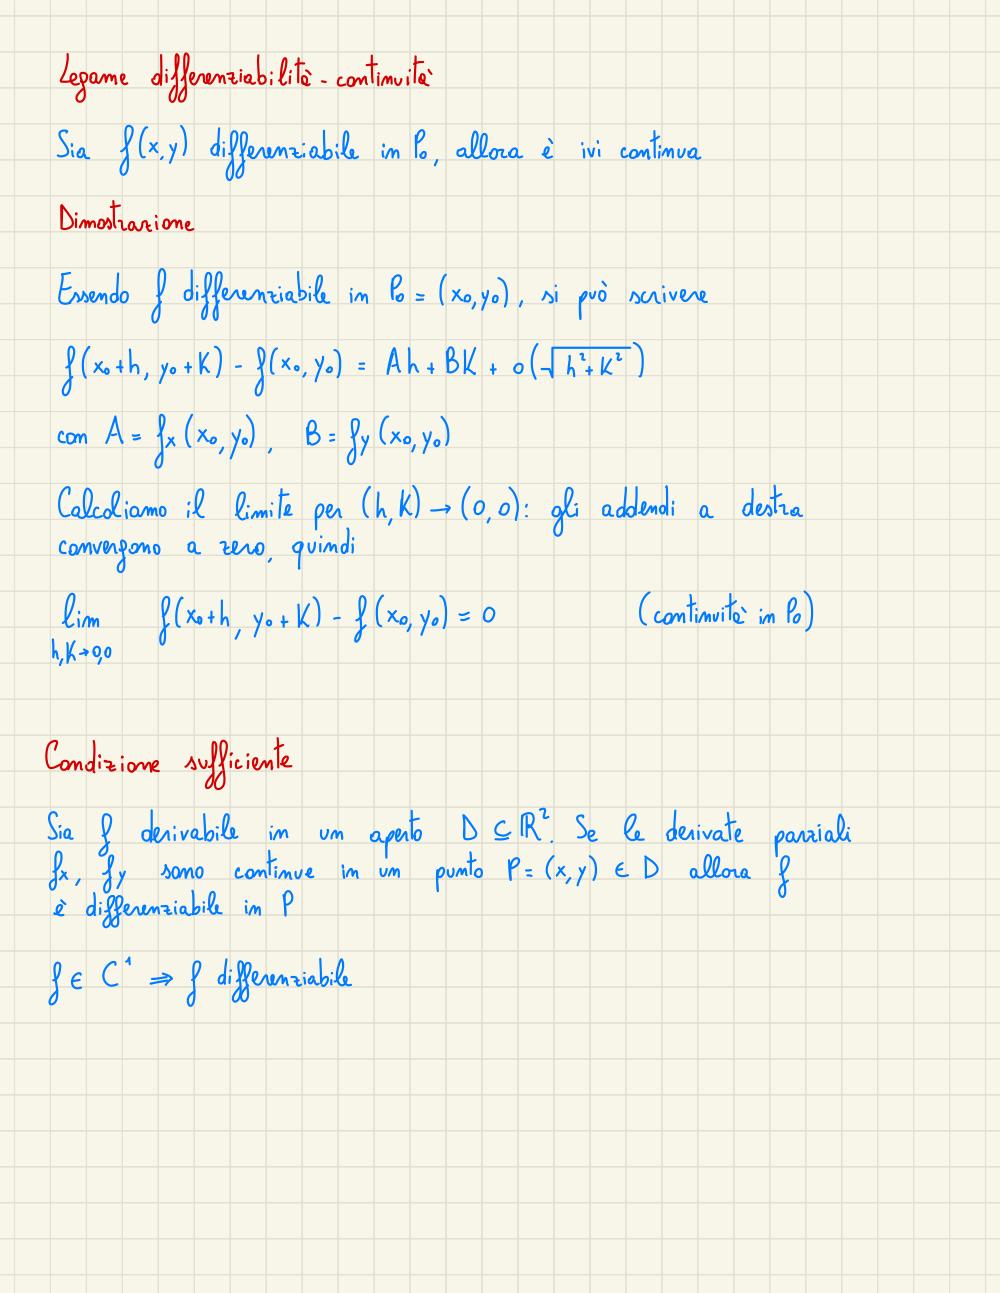 Legame differenziabilità - continuità
Sia f(x,y) differenziabile in P₀, allora è ivi continua
Dimostrazione
Essendo f differenziabile in P₀ = (x₀,y₀), si può scrivere
f(x₀+h, y₀+K) - f(x₀,y₀) = Ah + BK + o(√(h²+K²))
con A = fₓ(x₀,y₀), B = fy(x₀,y₀)
Calcoliamo il limite per (h,K) → (0,0): gli addendi a destra
convergono a zero, quindi
lim f(x₀+h, y₀+K) - f(x₀,y₀) = 0 (continuità in P₀)
h,K→0,0
Condizione sufficiente
Sia f derivabile in un aperto D ⊆ ℝ². Se le derivate parziali
fₓ, fy sono continue in un punto P = (x,y) ∈ D allora f
è differenziabile in P
f ∈ C¹ ⇒ f differenziabile